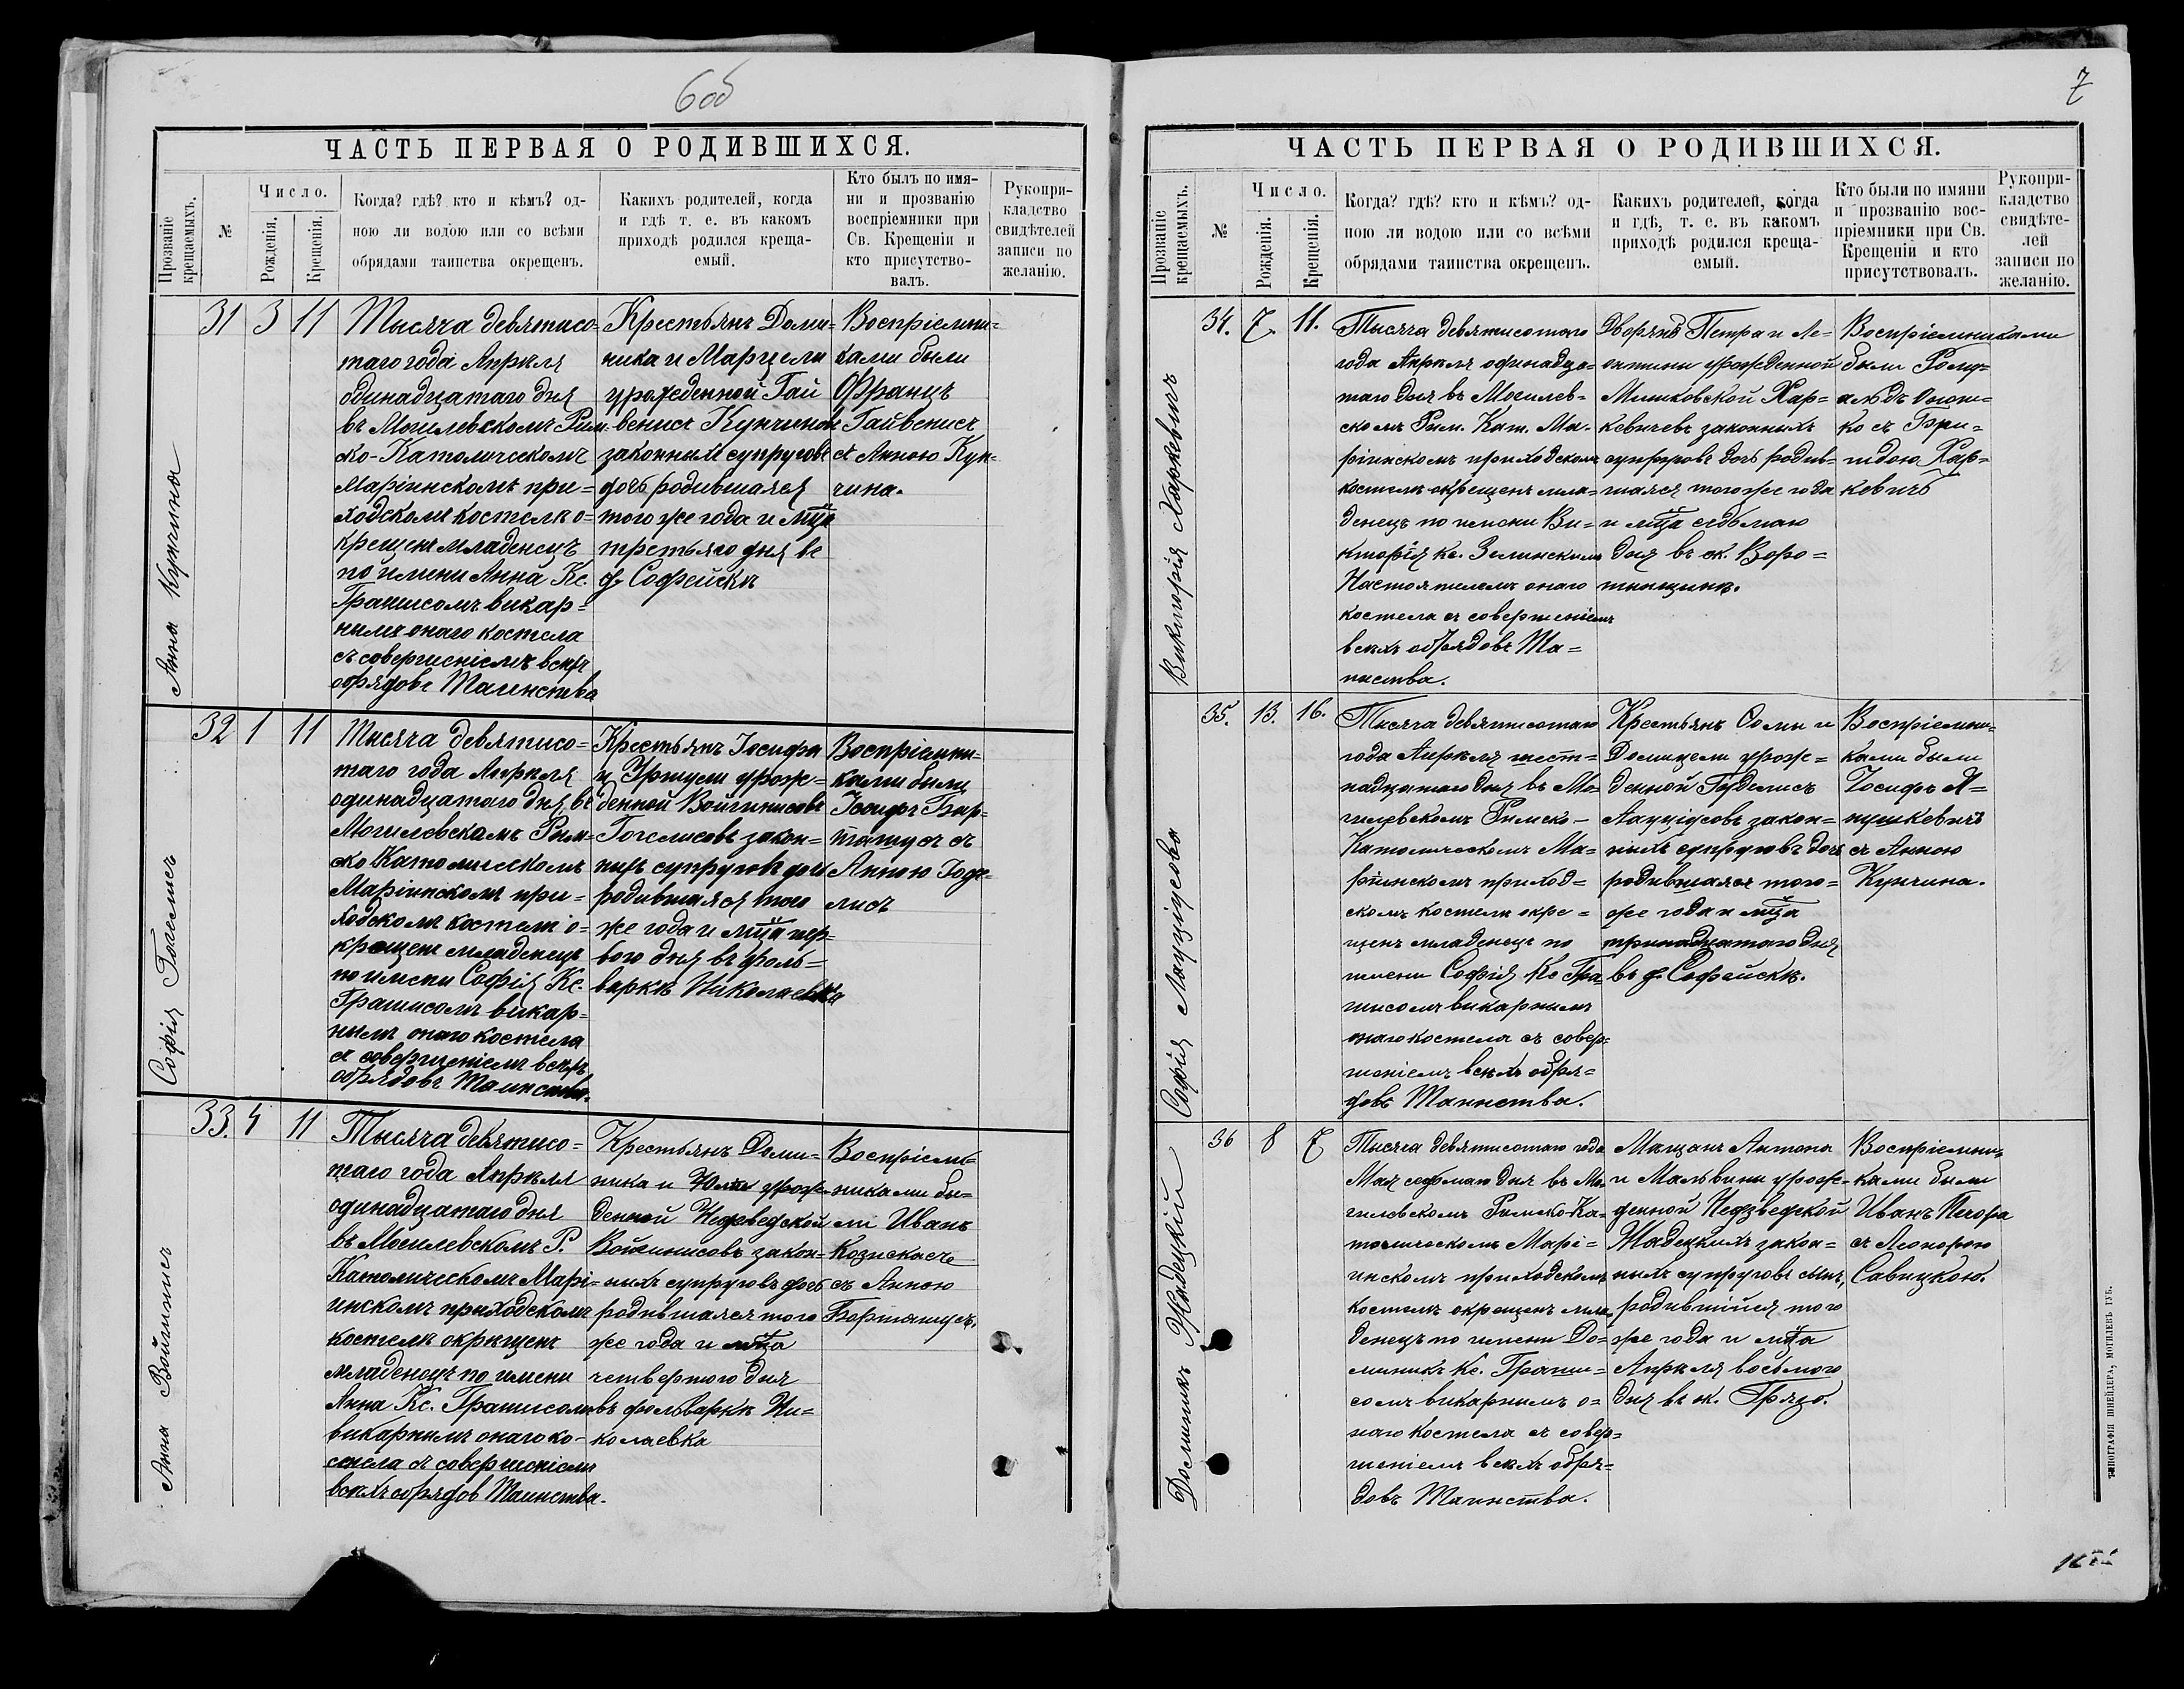 6об
ЧАСТЬ ПЕРВАЯ О РОДИВШИХСЯ.
Прозваніе крещаемыхъ.
№
Число.
Рожденія.
Крещенія.
Когда? гдѣ? кто и кѣмъ? од-
ною ли водою или со всѣми
обрядами таинства окрещенъ.
Какихъ родителей, когда
и гдѣ т. е. въ какомъ
приходѣ родился креща-
емый.
Кто былъ по имя-
ни и прозванію
воспріемники при
Св. Крещеніи и
кто присутство-
валъ.
Рукопри-
кладство
свидѣтелей
записи по
желанію.
Анна Кунчина
31 3 11
Тысяча девятисо=
таго года Апрѣля
одинадцатаго дня
въ Могилевскомъ Рим-
ско-Католическомъ
Маріинскомъ при=
ходскомъ костелѣ о=
крещенъ младенецъ
по имени Анна Кс.
Гранисомъ викар=
нымъ онаго костела
съ совершеніемъ всѣхъ
обрядовъ Таинства
Крестьянъ Доми=
ника и Марцели
урожденной Гай
венисъ Кунчинов
законныхъ супруговъ
дочь родившаяся
того же года и мца
третьяго дня въ
д. Софейскѣ
Воспріемни=
ками были
Францъ
Гайвенисъ
съ Анною Кун=
чина.
Софія Гогелисъ
32 1 11
Тысяча девятисо=
таго года Апрѣля
одинадцатаго дня въ
Могилевскомъ Рим=
ско Католическомъ
Маріинскомъ при=
ходскомъ костелѣ о=
крещенъ младенецъ
по имени Софія Кс.
Гранисомъ викар=
нымъ онаго костела
съ совершеніемъ всѣхъ
обрядовъ Таинства.
Крестьянъ Іосифа
и Уршули урож=
денной Войшнисовъ
Гогелисовъ закон=
ныхъ супруговъ дочь
родившаяся того
же года и мца пер=
вого дня въ фоль=
варкѣ Николаевка
Воспріемни=
ками были
Іосифъ Бар=
ташусъ съ
Анною Годе=
лисъ
Анна Войшнисъ
33. 4 11
Тысяча девятисо=
таго года Апрѣля
одинадцатаго дня
въ Могилевскомъ Р.
Католическомъ Марі=
инскомъ приходскомъ
костелѣ окрещенъ
младенецъ по имени
Анна Кс. Гранисомъ
викарнымъ онаго ко-
стела съ совершеніемъ
всѣхъ обрядов Таинства.
Крестьянъ Доми=
ника и Юліи урож=
денной Недведской
Войшнисовъ закон=
ныхъ супруговъ дочь
родившаяся того
же года и мца
четвертого дня
въ фольваркѣ Ни=
колаевка
Воспріем=
никами бы=
ли Иванъ
съ Анною
Барташусъ.
7
ЧАСТЬ ПЕРВАЯ О РОДИВШИХСЯ.
Прозваніе крещаемыхъ.
№
Число.
Рожденія.
Крещенія.
Когда? гдѣ? кто и кѣмъ? од-
ною ли водою или со всѣми
обрядами таинства окрещенъ.
Какихъ родителей, когда
и гдѣ, т. е. въ какомъ
приходѣ родился креща-
емый.
Кто были по имяни
и прозванію вос-
пріемники при Св.
Крещеніи и кто
присутствовалъ.
Рукопри-
кладство
свидѣте-
лей
записи по
желанію.
Викторія Харкевичъ
34. 7. 11.
Тысяча девятисотаго
года Апрѣля одинадца=
таго дня въ Могилев=
скомъ Рим. Кат. Ма-
ріинскомъ приходскомъ
костелѣ окрещенъ мла=
денецъ по имени Ви=
кторія кс. Зелинскимъ
Настоятелемъ онаго
костела съ совершеніемъ
всѣхъ обрядовъ Та=
инства.
Дворянъ Петра и Ле=
онтины урожденной
Мишковской Хар=
кевичевъ законныхъ
супруговъ дочь родив=
шаяся того же года
и мца седьмаго
дня въ ок. Воро=
тынщинѣ.
Воспріемниками
были Рому=
альдъ
ко съ Бри=
гидою Хар=
кевичъ
Софія Лауцусова
35. 13. 16.
Тысяча девятисотаго
года Апрѣля шест=
надцатаго дня въ Мо=
гилевскомъ Римско-
Католическомъ Ма=
ріинскомъ приход=
скомъ костелѣ окре=
щенъ младенецъ по
имени Софія Кс Гра=
нисомъ викарнымъ
онаго костела съ совер=
шеніемъ всѣхъ обря=
довъ Таинства.
Крестьянъ Сомы и
Домицели урож=
денной Гуделисъ
Лауцусовъ закон=
ныхъ супруговъ дочь
родившаяся того=
же года и мца
тринадцатаго дня
въ д. Софейскѣ.
Воспріемни=
ками были
Іосифъ Я=
нушкевичъ
съ Анною
Кунчина.
Доминикъ Жадецкій
36 8 7
Тысяча девятисотаго года
Мая седьмаго дня въ Мо=
гилевскомъ Римско-Ка=
толическомъ Марі=
инскомъ приходскомъ
костелѣ окрещенъ мла
денецъ по имени До=
миникъ Кс. Грани=
сомъ викарнымъ о=
наго костела съ совер=
шеніемъ всѣхъ обря=
довъ Таинства.
Мѣщанъ Антона
и Мальвины урож=
денной Недзведской
Жадецкихъ закон=
ныхъ супруговъ сынъ,
родившійся того
же года и мца
Апрѣля восьмого
дня въ ок. Грязо.
Воспріемни=
ками были
Иванъ Печора
съ Леонорою
Савицкою.
ТИПОГРАФІЯ ШНЕЙДЕРА, МОГИЛЕВЪ ГУБ.